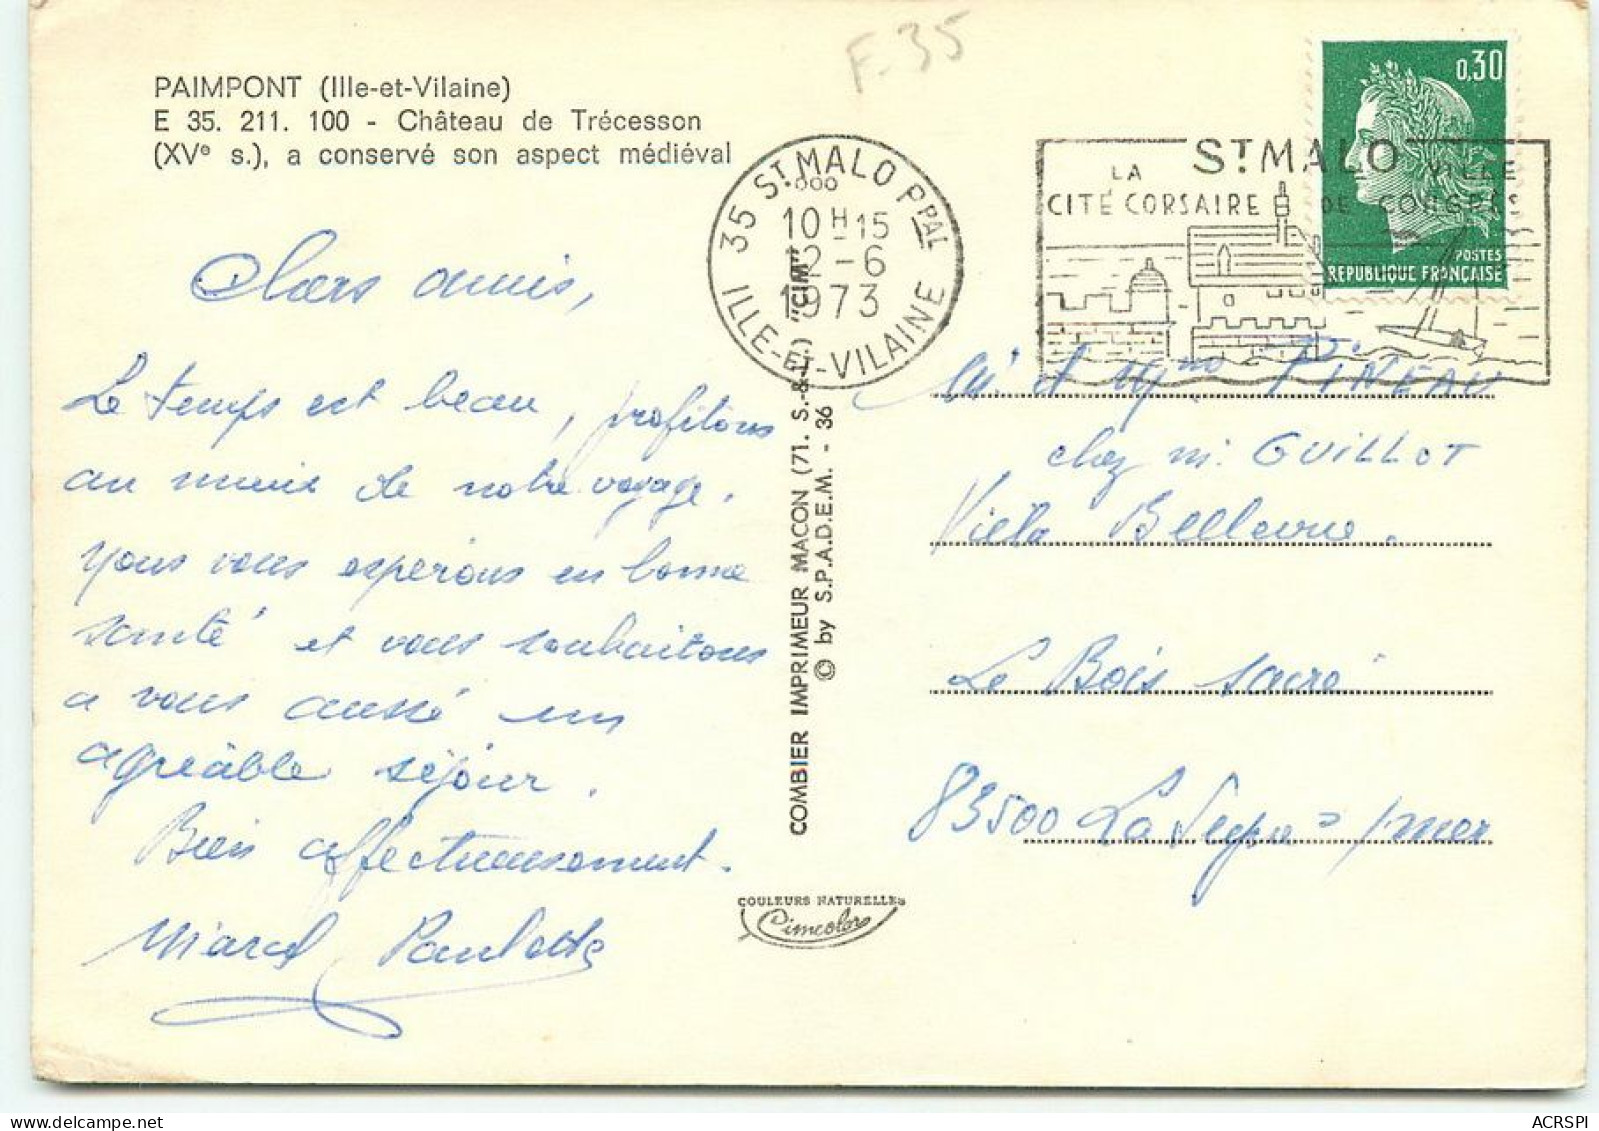 F.35
PAIMPONT (Ille-et-Vilaine)
E 35. 211. 100 - Château de Trécesson
(XVe s.), a conservé son aspect médiéval
0,30
POSTES
REPUBLIQUE FRANÇAISE
35 ST MALO PPAL
10 H 15
12-6
1973
ILLE-ET-VILAINE
ST MALO
LA
CITÉ CORSAIRE
VILLE
DE CONGRÈS
Chers amis,
Le temps est beau, profitons
au mieux de notre voyage.
Nous vous espérons en bonne
santé et vous souhaitons
a vous aussi un
agréable séjour.
Bien affectueusement.
Marcel Paulette
COMBIER IMPRIMEUR MACON (71. S.-&-L.) "CIM"
© by S.P.A.D.E.M. - 36
COULEURS NATURELLES
Cimcolor
M. et Mme PINEAU
chez M. GUILLOT
Villa Bellevue.
Le Bois sacré
83500 La Seyne s/mer
ACRSPI